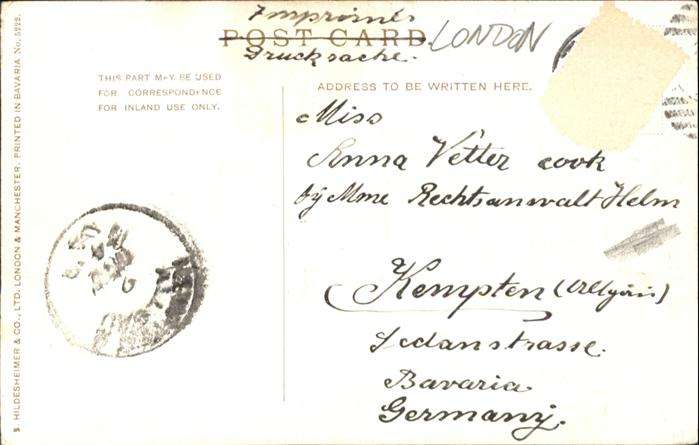 Imprimés
POST CARD.
Drucksache.
LONDON
THIS PART MAY BE USED
FOR CORRESPONDENCE
FOR INLAND USE ONLY.
ADDRESS TO BE WRITTEN HERE.
Miss
Anna Vetter cook
by Mme Rechtsanwalt Helm
Kempten (Allgäu)
Sedanstrasse.
Bavaria.
Germany.
HILDESHEIMER & CO., LTD. LONDON & MANCHESTER. PRINTED IN BAVARIA No. 5228.